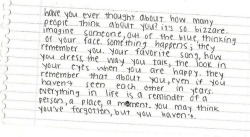 have you ever thought about how many
people think about you? it's so bizzare.
imagine someone, out of the blue, thinking
of your face. something happens; they
remember you. your favorite song, how
you dress, the way you talk, the look in
your eyes when you are happy. they
remember that about you, even if you
haven't seen each other in years.
everything in life is a reminder of a
person, a place, a moment. you may think
you've forgotten, but you haven't.